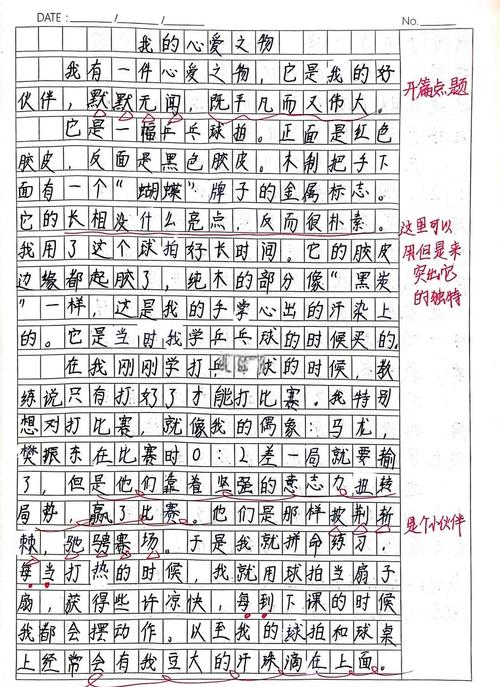 DATE: / /
No.
我的心爱之物
我有一件心爱之物，它是我的好
伙伴，默默无闻，既平凡而又伟大。
开篇点题
它是一幅乒乓球拍。正面是红色
胶皮，反面是黑色胶皮。木制把手下
面有一个“蝴蝶”牌子的金属标志。
它的长相没什么亮点，反而很朴素。
我用了这个球拍好长时间。它的胶皮
边缘都起胶了，纯木的部分像“黑炭
”一样，这是我的手掌心出的汗染上
的。它是当时我学乒乓球的时候买的。
这里可以
用但是来
突出它
的独特
在我刚刚学打 球的时候，教
练说只有打好了才能打比赛。我特别
想对打比赛，就像我的偶象：马龙，
樊振东在比赛时0:2差一局就要输
了，但是他们靠着坚强的意志力扭转
局势，赢了比赛。他们是那样披荆斩
棘，驰骋赛场。于是我就拼命练习，
是个小伙伴
每当打热的时候，我就用球拍当扇子
扇，获得些许凉快，每到下课的时候
我都会摆动作。以至我的球拍和球桌
上经常会有我豆大的汗珠滴在上面。